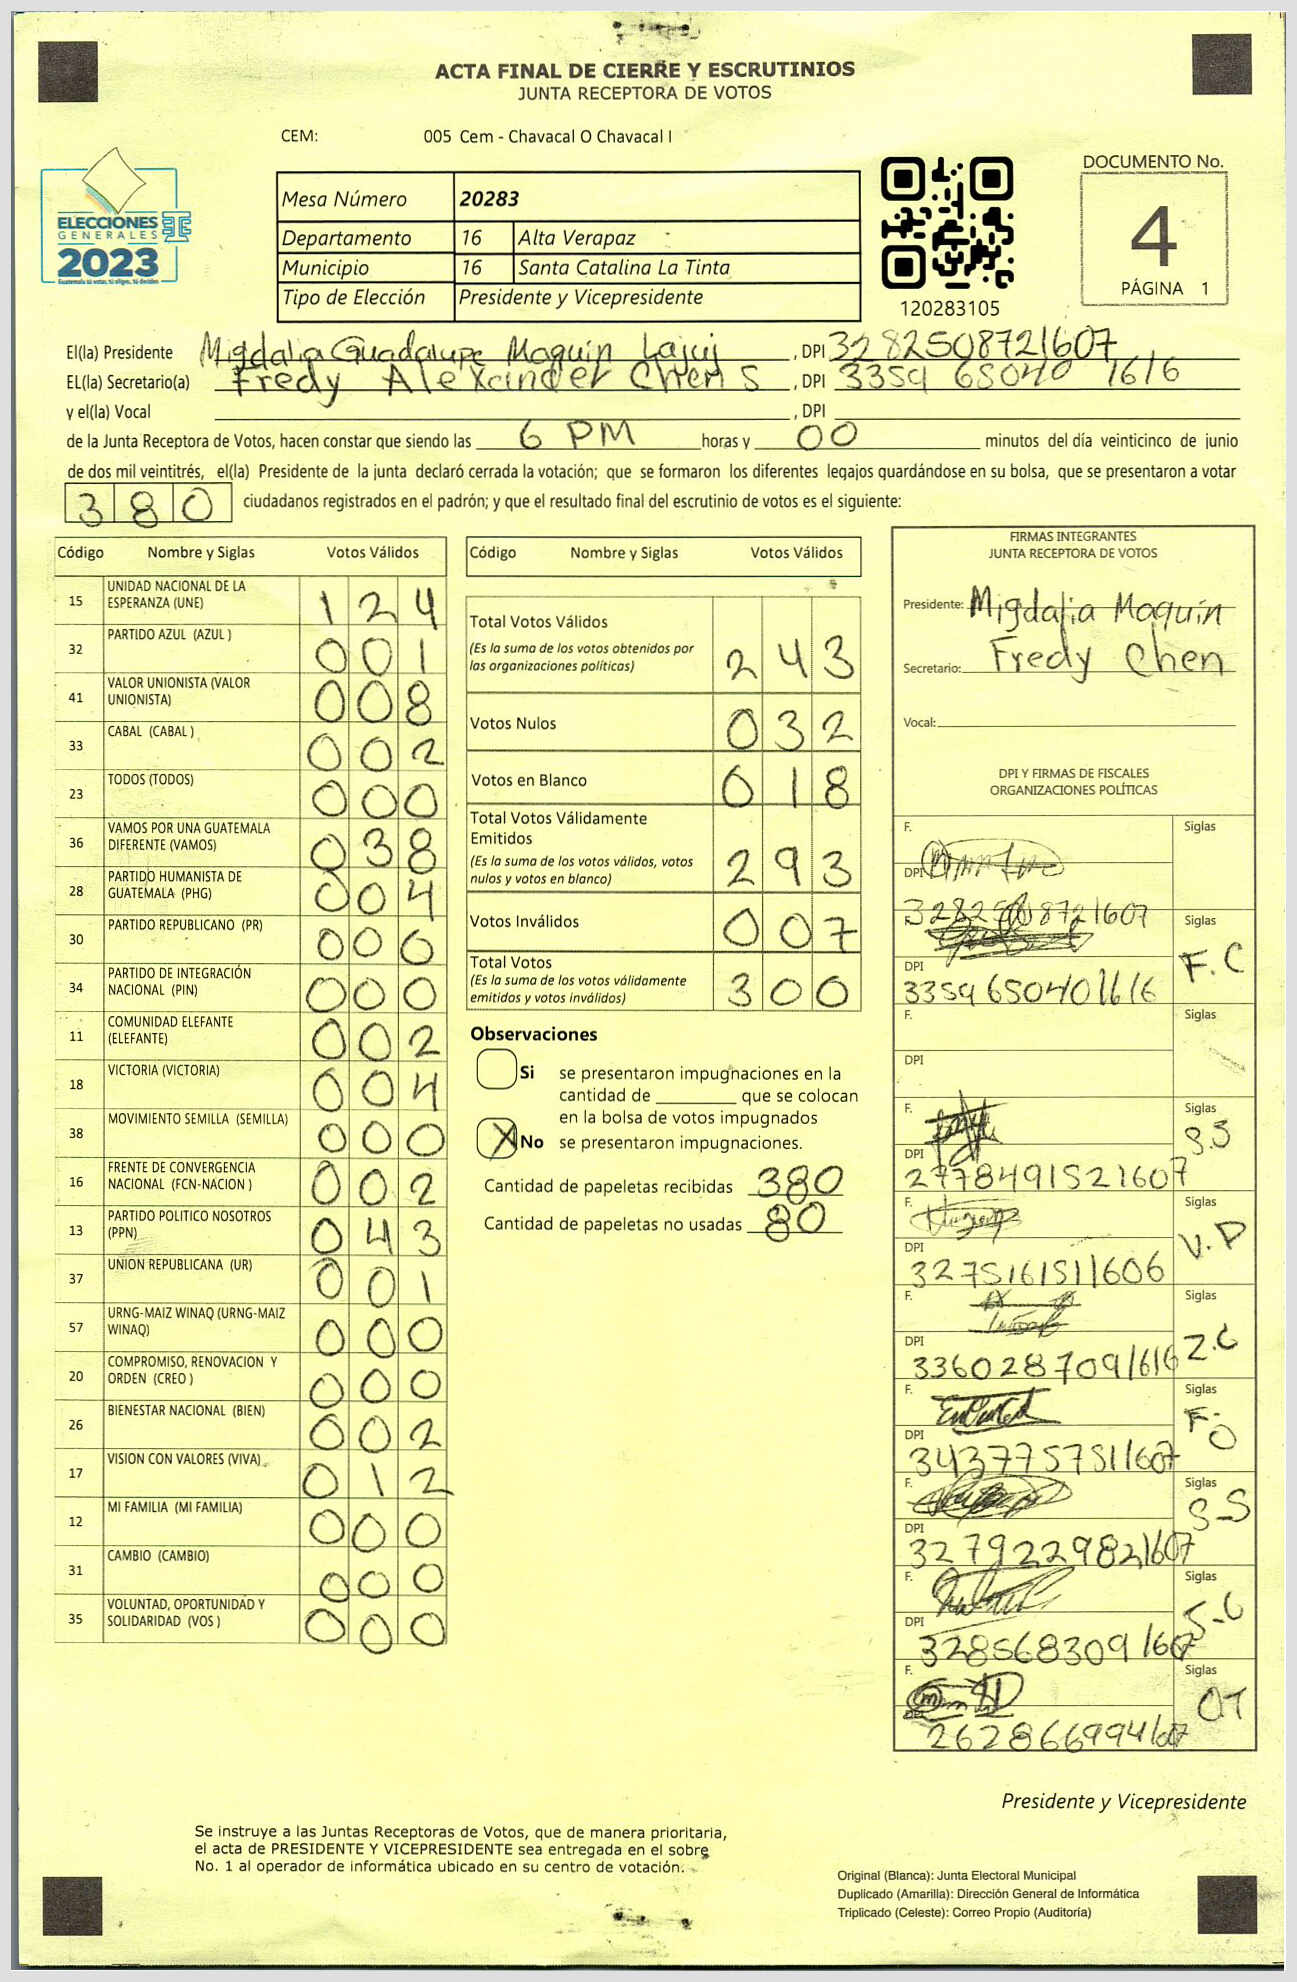 ACTA FINAL DE CIERRE Y ESCRUTINIOS
JUNTA RECEPTORA DE VOTOS
CEM: 005 Cem - Chavacal O Chavacal I
DOCUMENTO No.
4
PÁGINA 1
ELECCIONES
GENERALES
2023
Mesa Número 20283
Departamento 16 Alta Verapaz
Municipio 16 Santa Catalina La Tinta
Tipo de Elección Presidente y Vicepresidente
120283105
El(la) Presidente Migdalia Guadalupe Maquin Lajuj, DPI 3282508721607
EL(la) Secretario(a) Fredy Alexander Chen S, DPI 3359 65040 1616
y el(la) Vocal , DPI
de la Junta Receptora de Votos, hacen constar que siendo las 6 PM horas y 00 minutos del día veinticinco de junio
de dos mil veintitrés, el(la) Presidente de la junta declaró cerrada la votación; que se formaron los diferentes legajos guardándose en su bolsa, que se presentaron a votar
380 ciudadanos registrados en el padrón; y que el resultado final del escrutinio de votos es el siguiente:
Código Nombre y Siglas Votos Válidos
15 UNIDAD NACIONAL DE LA ESPERANZA (UNE) 124
32 PARTIDO AZUL (AZUL ) 001
41 VALOR UNIONISTA (VALOR UNIONISTA) 008
33 CABAL (CABAL ) 002
23 TODOS (TODOS) 000
36 VAMOS POR UNA GUATEMALA DIFERENTE (VAMOS) 038
28 PARTIDO HUMANISTA DE GUATEMALA (PHG) 004
30 PARTIDO REPUBLICANO (PR) 000
34 PARTIDO DE INTEGRACIÓN NACIONAL (PIN) 000
11 COMUNIDAD ELEFANTE (ELEFANTE) 002
18 VICTORIA (VICTORIA) 004
38 MOVIMIENTO SEMILLA (SEMILLA) 000
16 FRENTE DE CONVERGENCIA NACIONAL (FCN-NACION ) 002
13 PARTIDO POLITICO NOSOTROS (PPN) 043
37 UNION REPUBLICANA (UR) 001
57 URNG-MAIZ WINAQ (URNG-MAIZ WINAQ) 000
20 COMPROMISO, RENOVACION Y ORDEN (CREO ) 000
26 BIENESTAR NACIONAL (BIEN) 002
17 VISION CON VALORES (VIVA) 012
12 MI FAMILIA (MI FAMILIA) 000
31 CAMBIO (CAMBIO) 000
35 VOLUNTAD, OPORTUNIDAD Y SOLIDARIDAD (VOS ) 000
Código Nombre y Siglas Votos Válidos
Total Votos Válidos 243
(Es la suma de los votos obtenidos por
las organizaciones políticas)
Votos Nulos 032
Votos en Blanco 018
Total Votos Válidamente
Emitidos 293
(Es la suma de los votos válidos, votos
nulos y votos en blanco)
Votos Inválidos 007
Total Votos 300
(Es la suma de los votos válidamente
emitidos y votos inválidos)
Observaciones
Si se presentaron impugnaciones en la
cantidad de ________ que se colocan
en la bolsa de votos impugnados
X No se presentaron impugnaciones.
Cantidad de papeletas recibidas 380
Cantidad de papeletas no usadas 80
FIRMAS INTEGRANTES
JUNTA RECEPTORA DE VOTOS
Presidente: Migdalia Maquin
Secretario: Fredy Chen
Vocal:
DPI Y FIRMAS DE FISCALES
ORGANIZACIONES POLÍTICAS
F. Siglas
DPI
F. Siglas F.C
DPI 3359 650401616
F. Siglas
DPI
F. Siglas S.S
DPI 2778491521607
F. Siglas V.P
DPI 3275161511606
F. Siglas Z.C
DPI 3360287091616
F. Siglas F.O
DPI 3437757511607
F. Siglas S-S
DPI 3279229821607
F. Siglas S-C
DPI 3285683091607
F. Siglas O.T
DPI 2628669941607
Presidente y Vicepresidente
Se instruye a las Juntas Receptoras de Votos, que de manera prioritaria,
el acta de PRESIDENTE Y VICEPRESIDENTE sea entregada en el sobre
No. 1 al operador de informática ubicado en su centro de votación.
Original (Blanca): Junta Electoral Municipal
Duplicado (Amarilla): Dirección General de Informática
Triplicado (Celeste): Correo Propio (Auditoría)